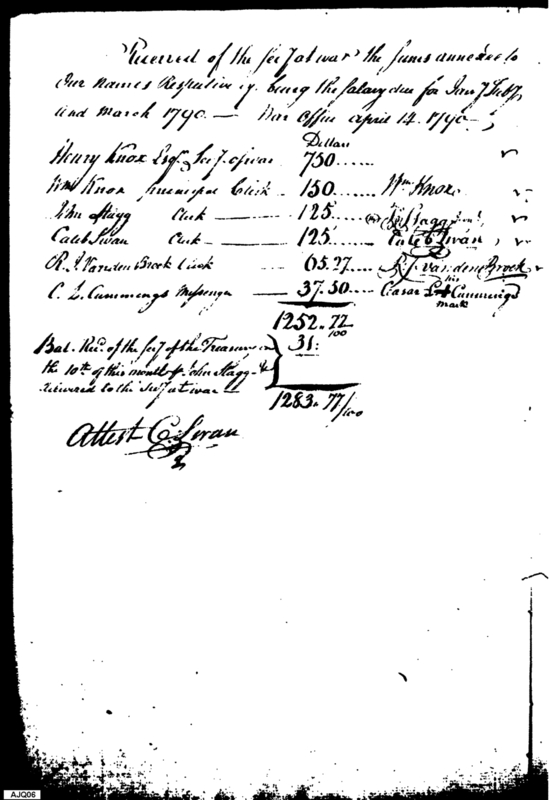 Received of the Secy at war the sums annexed to
Our Names Respectively, being the Salary due for Jany Feby
and March 1790 — War Office April 14. 1790
Dollars
Henry Knox Esqr. Secy. of war 750
Wm Knox principal Clerk - 150 Wm Knox
John Stagg Clerk — 125 Jno Stagg Junr.
Caleb Swan Clerk — 125 Caleb Swan
R. J. Vanden Broek Clerk -- 65.27 R. J. vanden Broek
C. L. Cummings Messenger — 37.50 Cæsar L + Cummings
his
mark
1252.77/100
Bal. Recd. of the Secy of the Treasury on
the 10th of this month pr John Stagg &
delivered to the Secy at war
31:
1283.77/100
Attest C. Swan
AJQ06